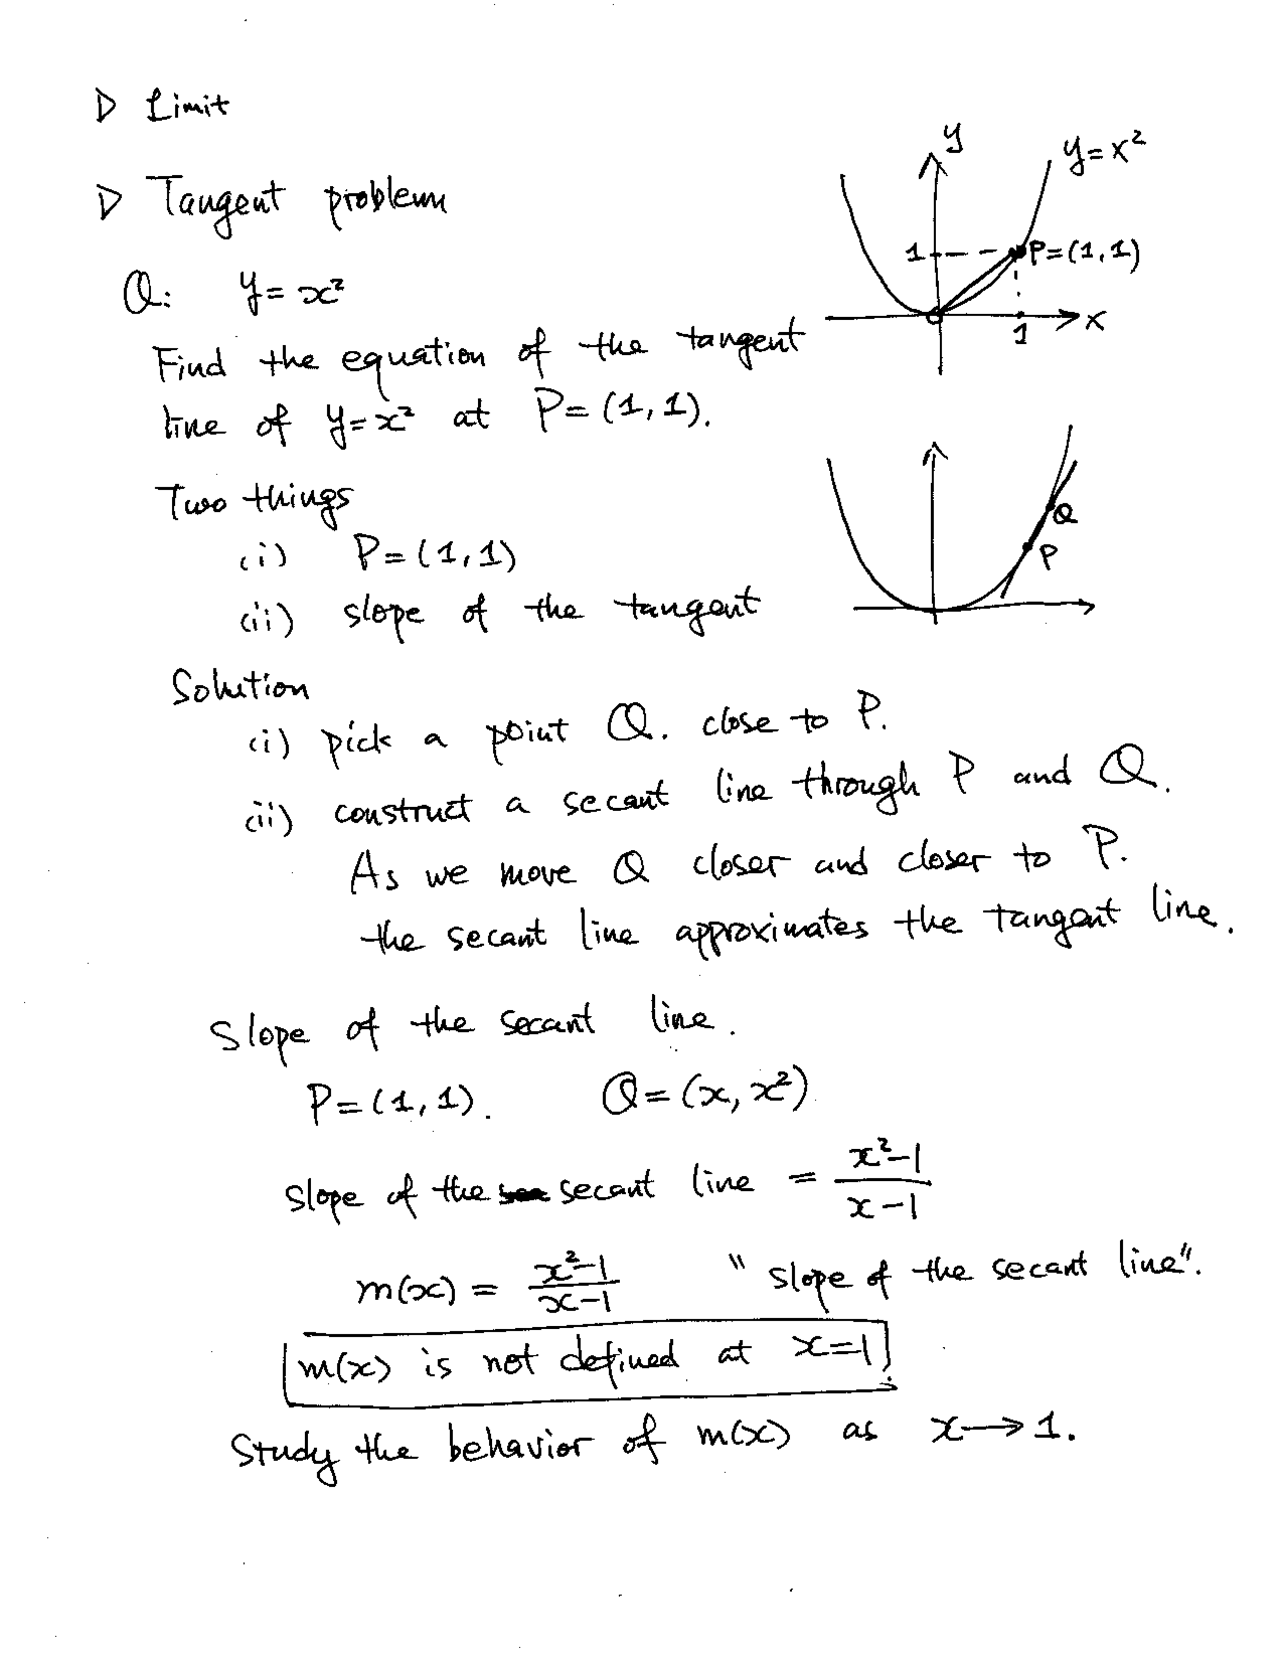 ▷ Limit
▷ Tangent problem
Q: y=x²
Find the equation of the tangent
line of y=x² at P=(1,1).
Two things
(i) P=(1,1)
(ii) slope of the tangent
y
y=x²
1
P=(1,1)
1
x
Q
P
Solution
(i) pick a point Q. close to P.
(ii) construct a secant line through P and Q.
As we move Q closer and closer to P.
the secant line approximates the tangent line.
Slope of the secant line.
P=(1,1). Q=(x, x²)
Slope of the secant line = (x²-1)/(x-1)
m(x) = (x²-1)/(x-1) "slope of the secant line".
m(x) is not defined at x=1!
Study the behavior of m(x) as x→1.